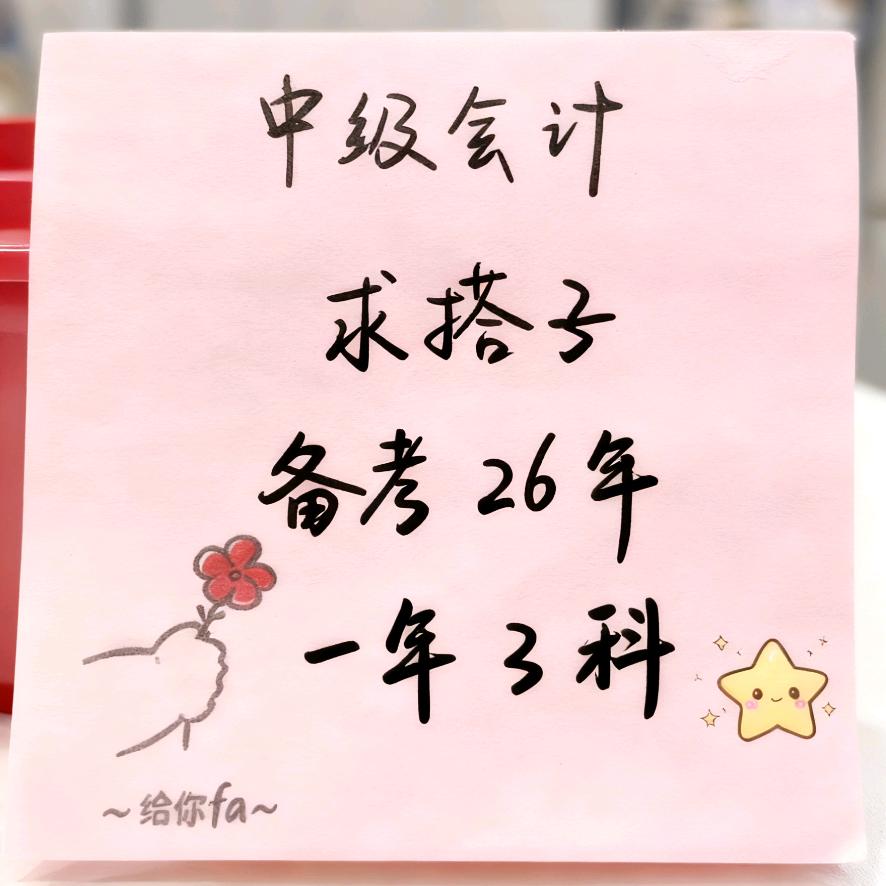 中级会计
求搭子
备考26年
一年3科
~给你fa~